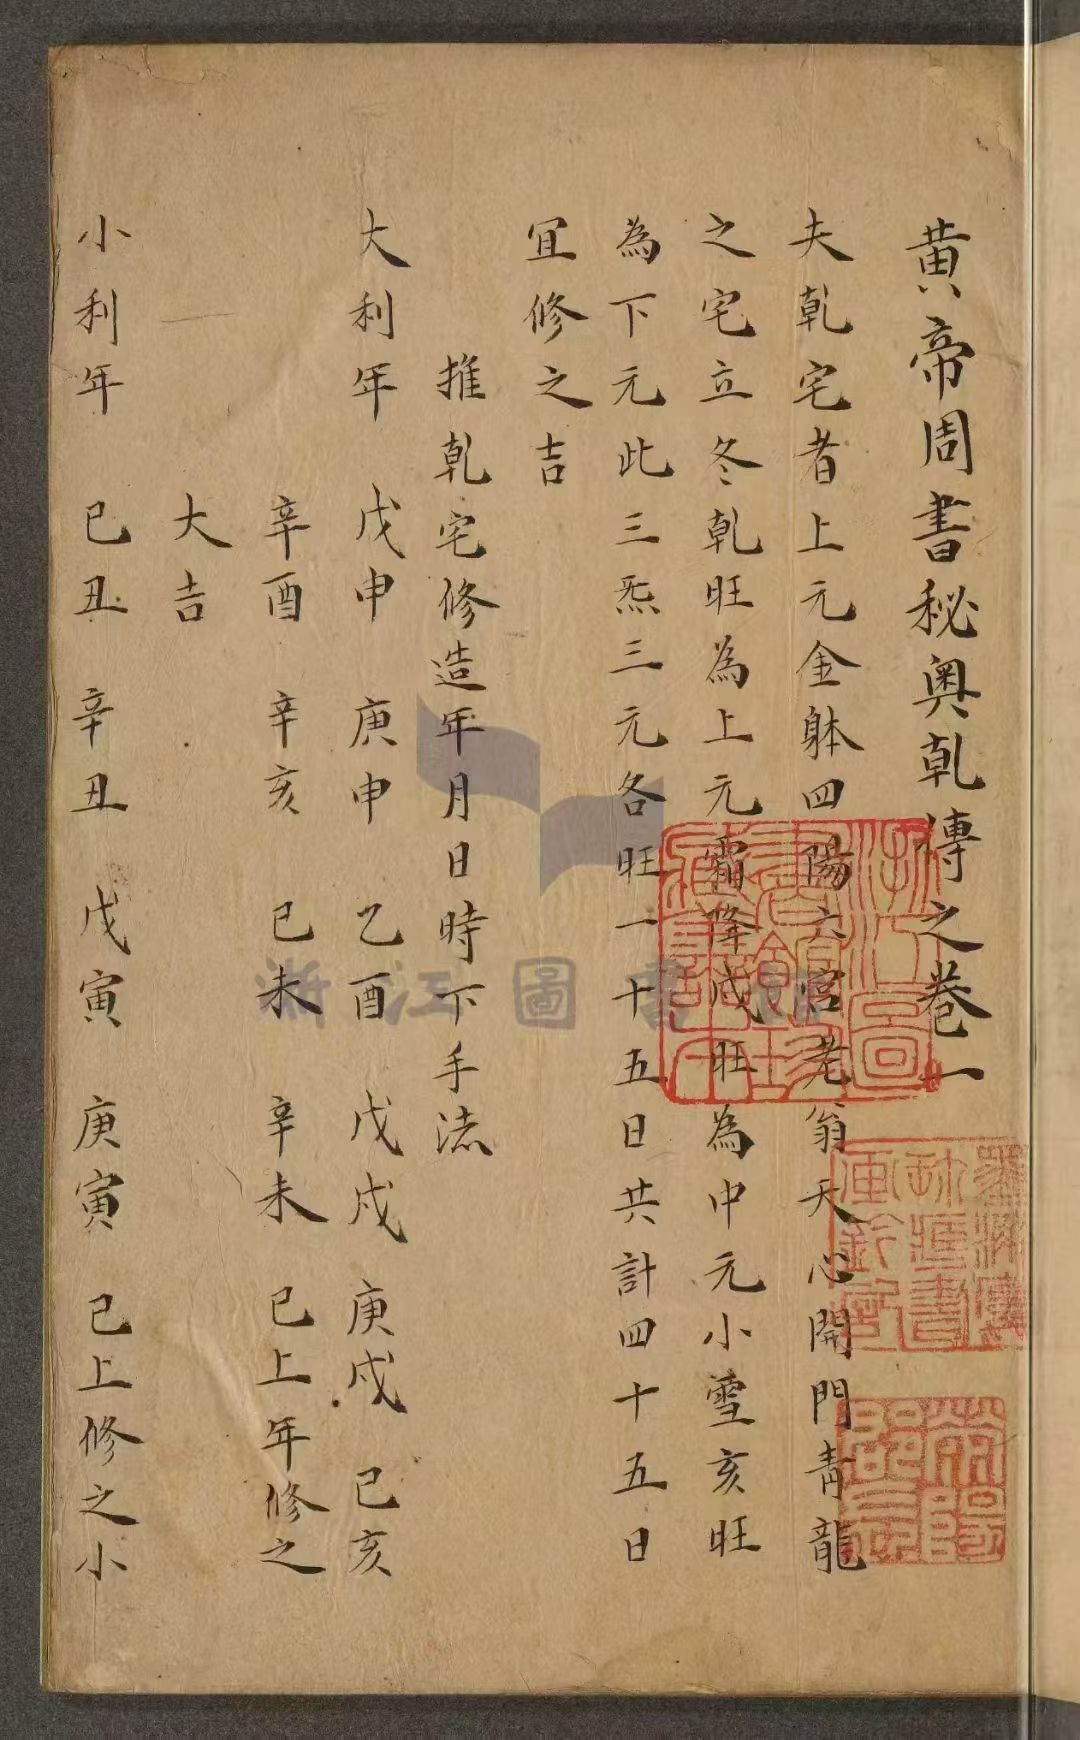 黄帝周書秘奥乾傳之巻一
夫乾宅者上元金躰四陽六宮老翁天心開門青龍
之宅立冬乾旺為上元霜降戌旺為中元小雪亥旺
為下元此三炁三元各旺一十五日共計四十五日
宜修之吉
推乾宅修造年月日時下手法
大利年 戊申 庚申 乙酉 戊戌 庚戌 己亥
辛酉 辛亥 己未 辛未 已上年修之
大吉
小利年 己丑 辛丑 戊寅 庚寅 已上修之小
浙江圖書館
浙江圖書館珍藏善本